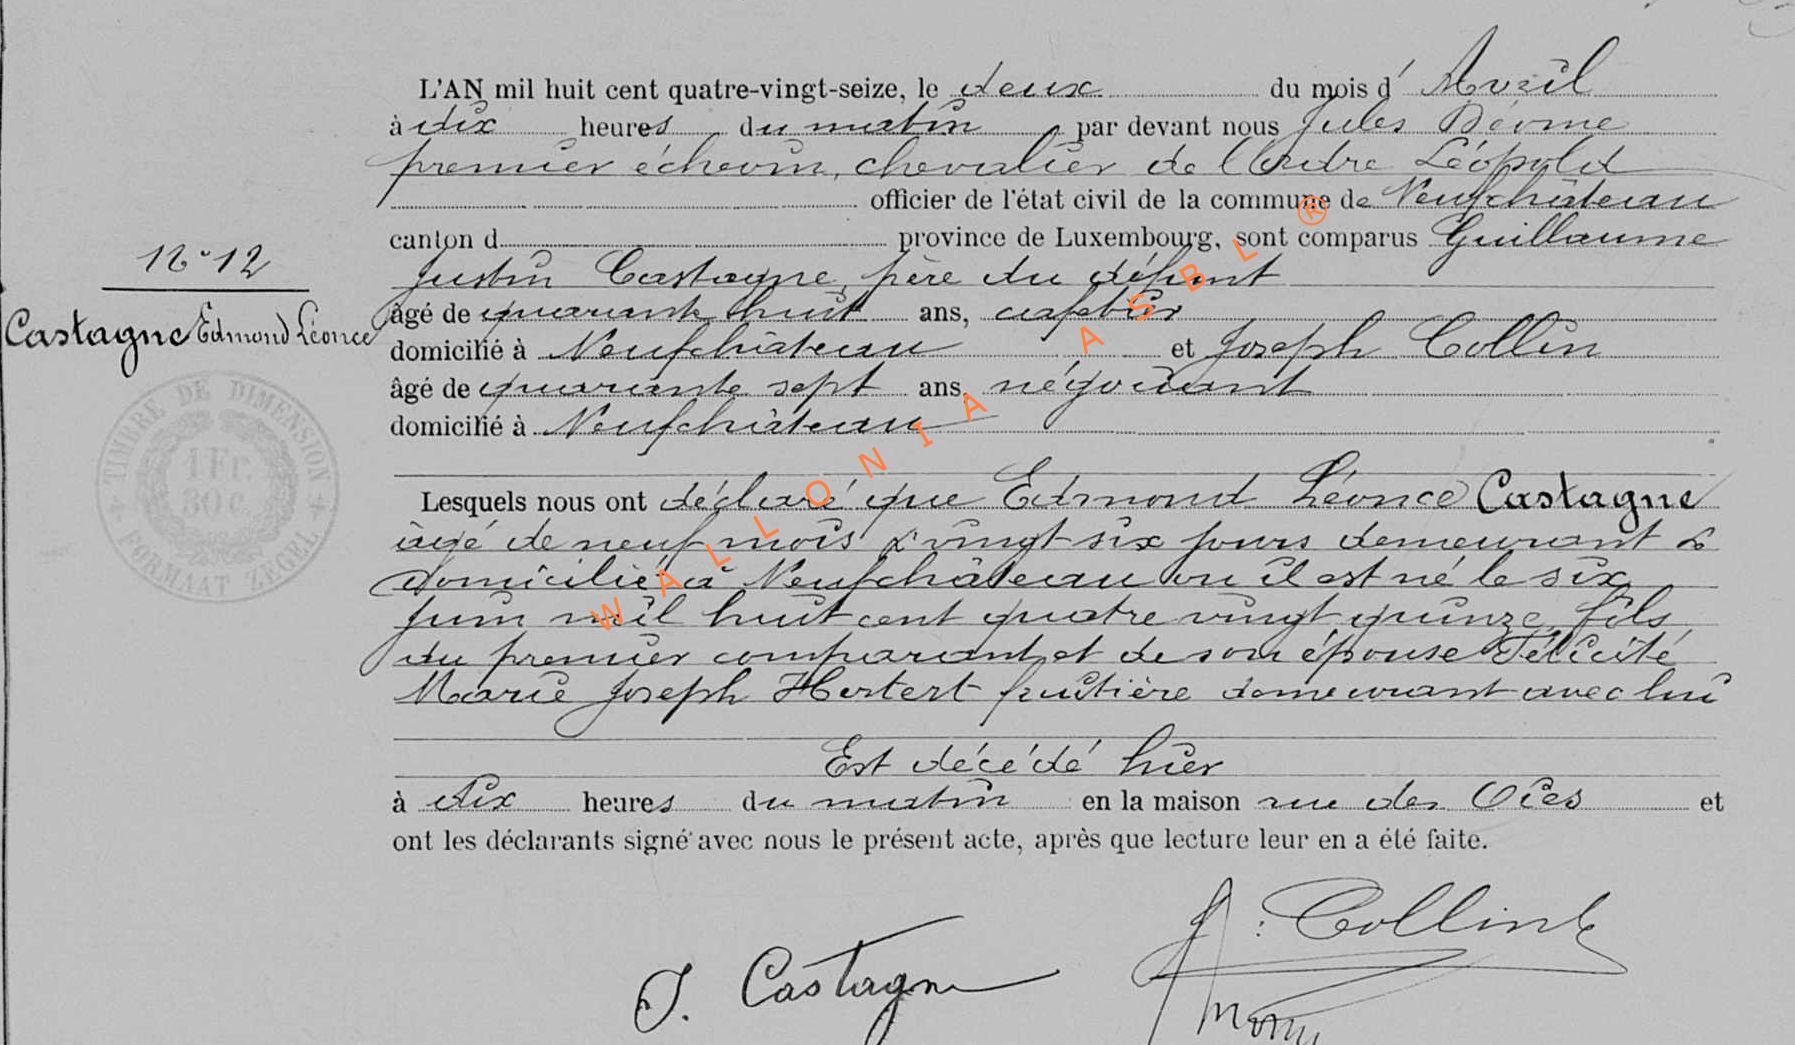 L'AN mil huit cent quatre-vingt-seize, le deux du mois d' Avril
à dix heures du matin par devant nous Jules
premier échevin, chevalier de l'Ordre Léopold
officier de l'état civil de la commune de Neufchâteau
canton d province de Luxembourg, sont comparus Guillaume
N° 12
Justin Castagne, père du défunt
Castagne Edmond Léonce
âgé de quarante huit ans, cafetier
domicilié à Neufchâteau et Joseph Collin
âgé de quarante sept ans, négociant
domicilié à Neufchâteau
TIMBRE DE DIMENSION
1 Fr.
30 c.
FORMAAT ZEGEL
Lesquels nous ont déclaré que Edmond Léonce Castagne
âgé de neuf mois & vingt six jours demeurant &
domicilié à Neufchâteau où il est né le six
Juin mil huit cent quatre vingt quinze, fils
du premier comparant et de son épouse Félicité
Marie Joseph Hertert fruitière demeurant avec lui
Est décédé hier
à dix heures du matin en la maison rue des Oies et
ont les déclarants signé avec nous le présent acte, après que lecture leur en a été faite.
J. Collin
J. Castagne
WALLONIA ASBL ®